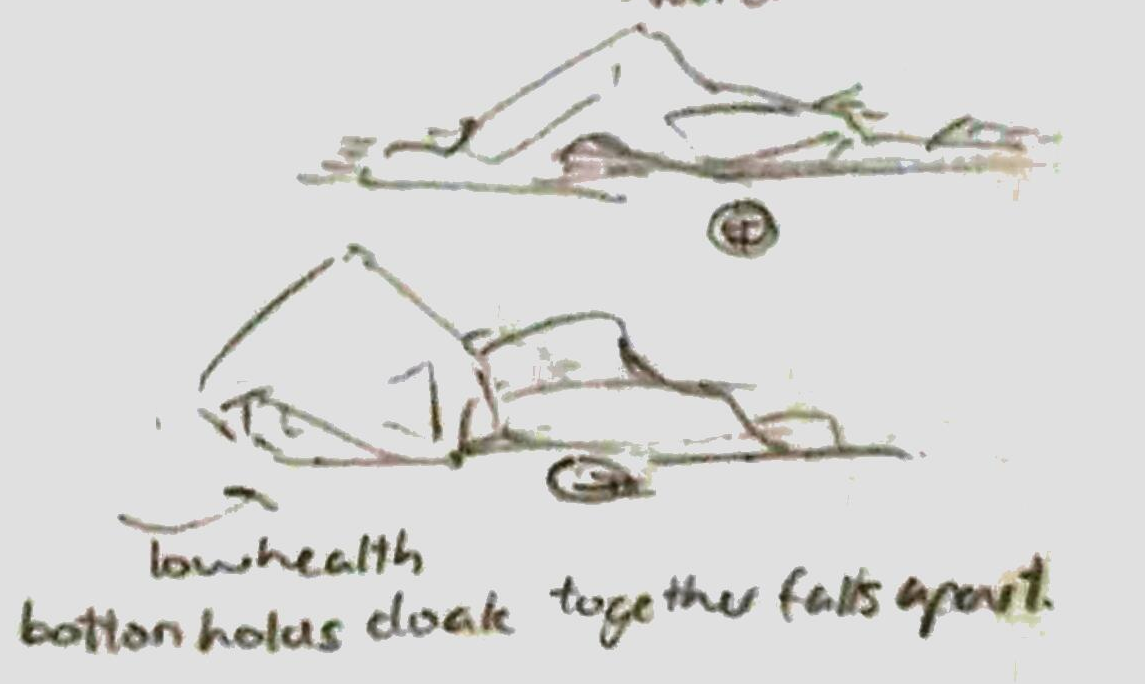 low health
botton holds cloak together falls apart.